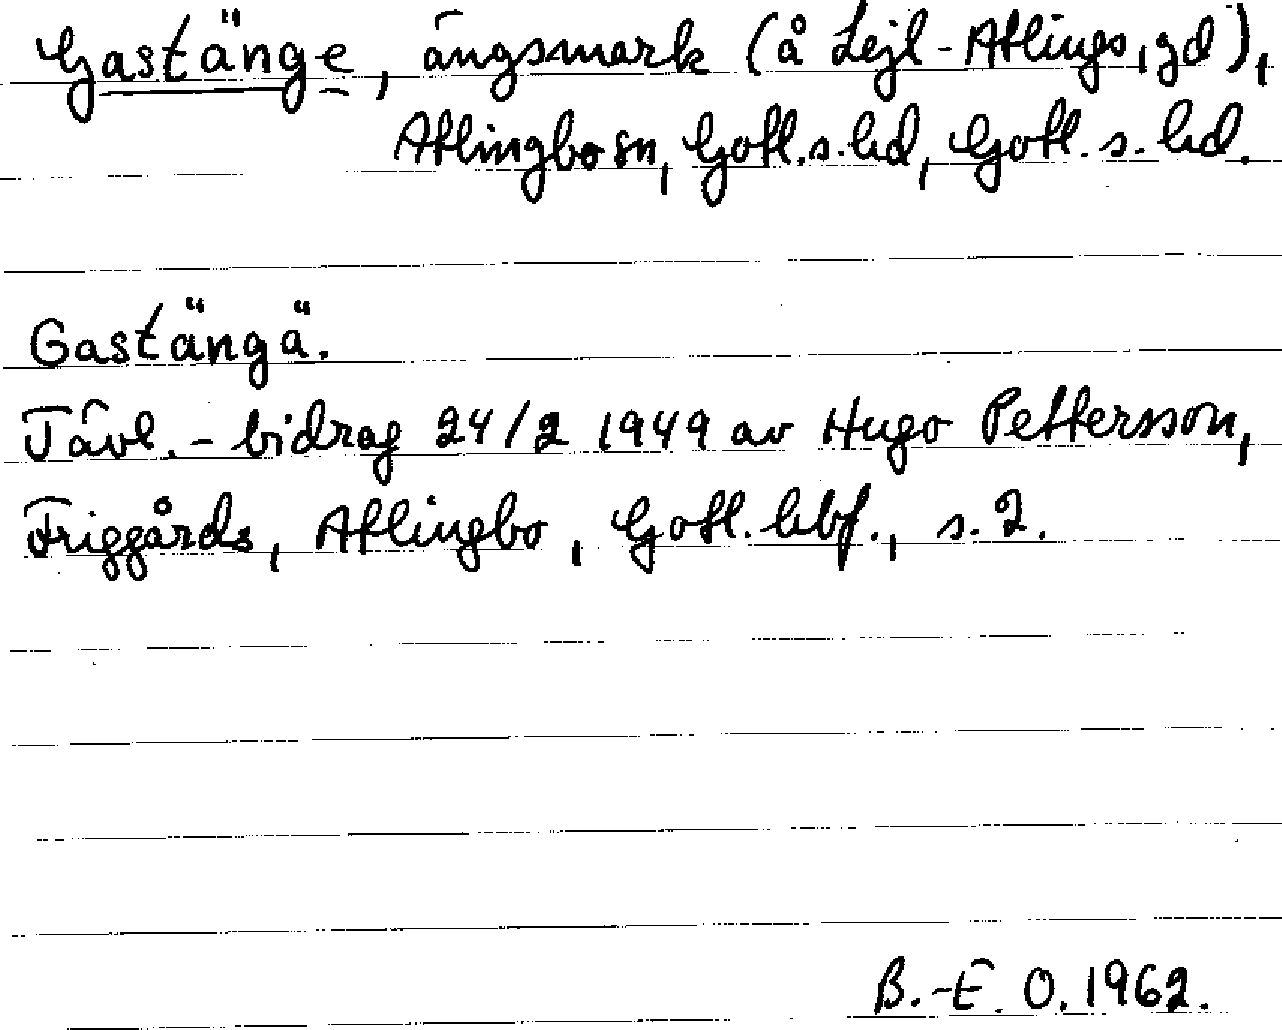 Gastänge, ängsmark (å Lejl-Atlings, gd),
Atlingbo sn, Gotl. s. hd, Gotl. s. hd.
Gastängä.
Tävl.-bidrag 24/2 1949 av Hugo Pettersson,
Friggårds, Atlingbo, Gotl. hbf., s. 2.
B.-E. O. 1962.